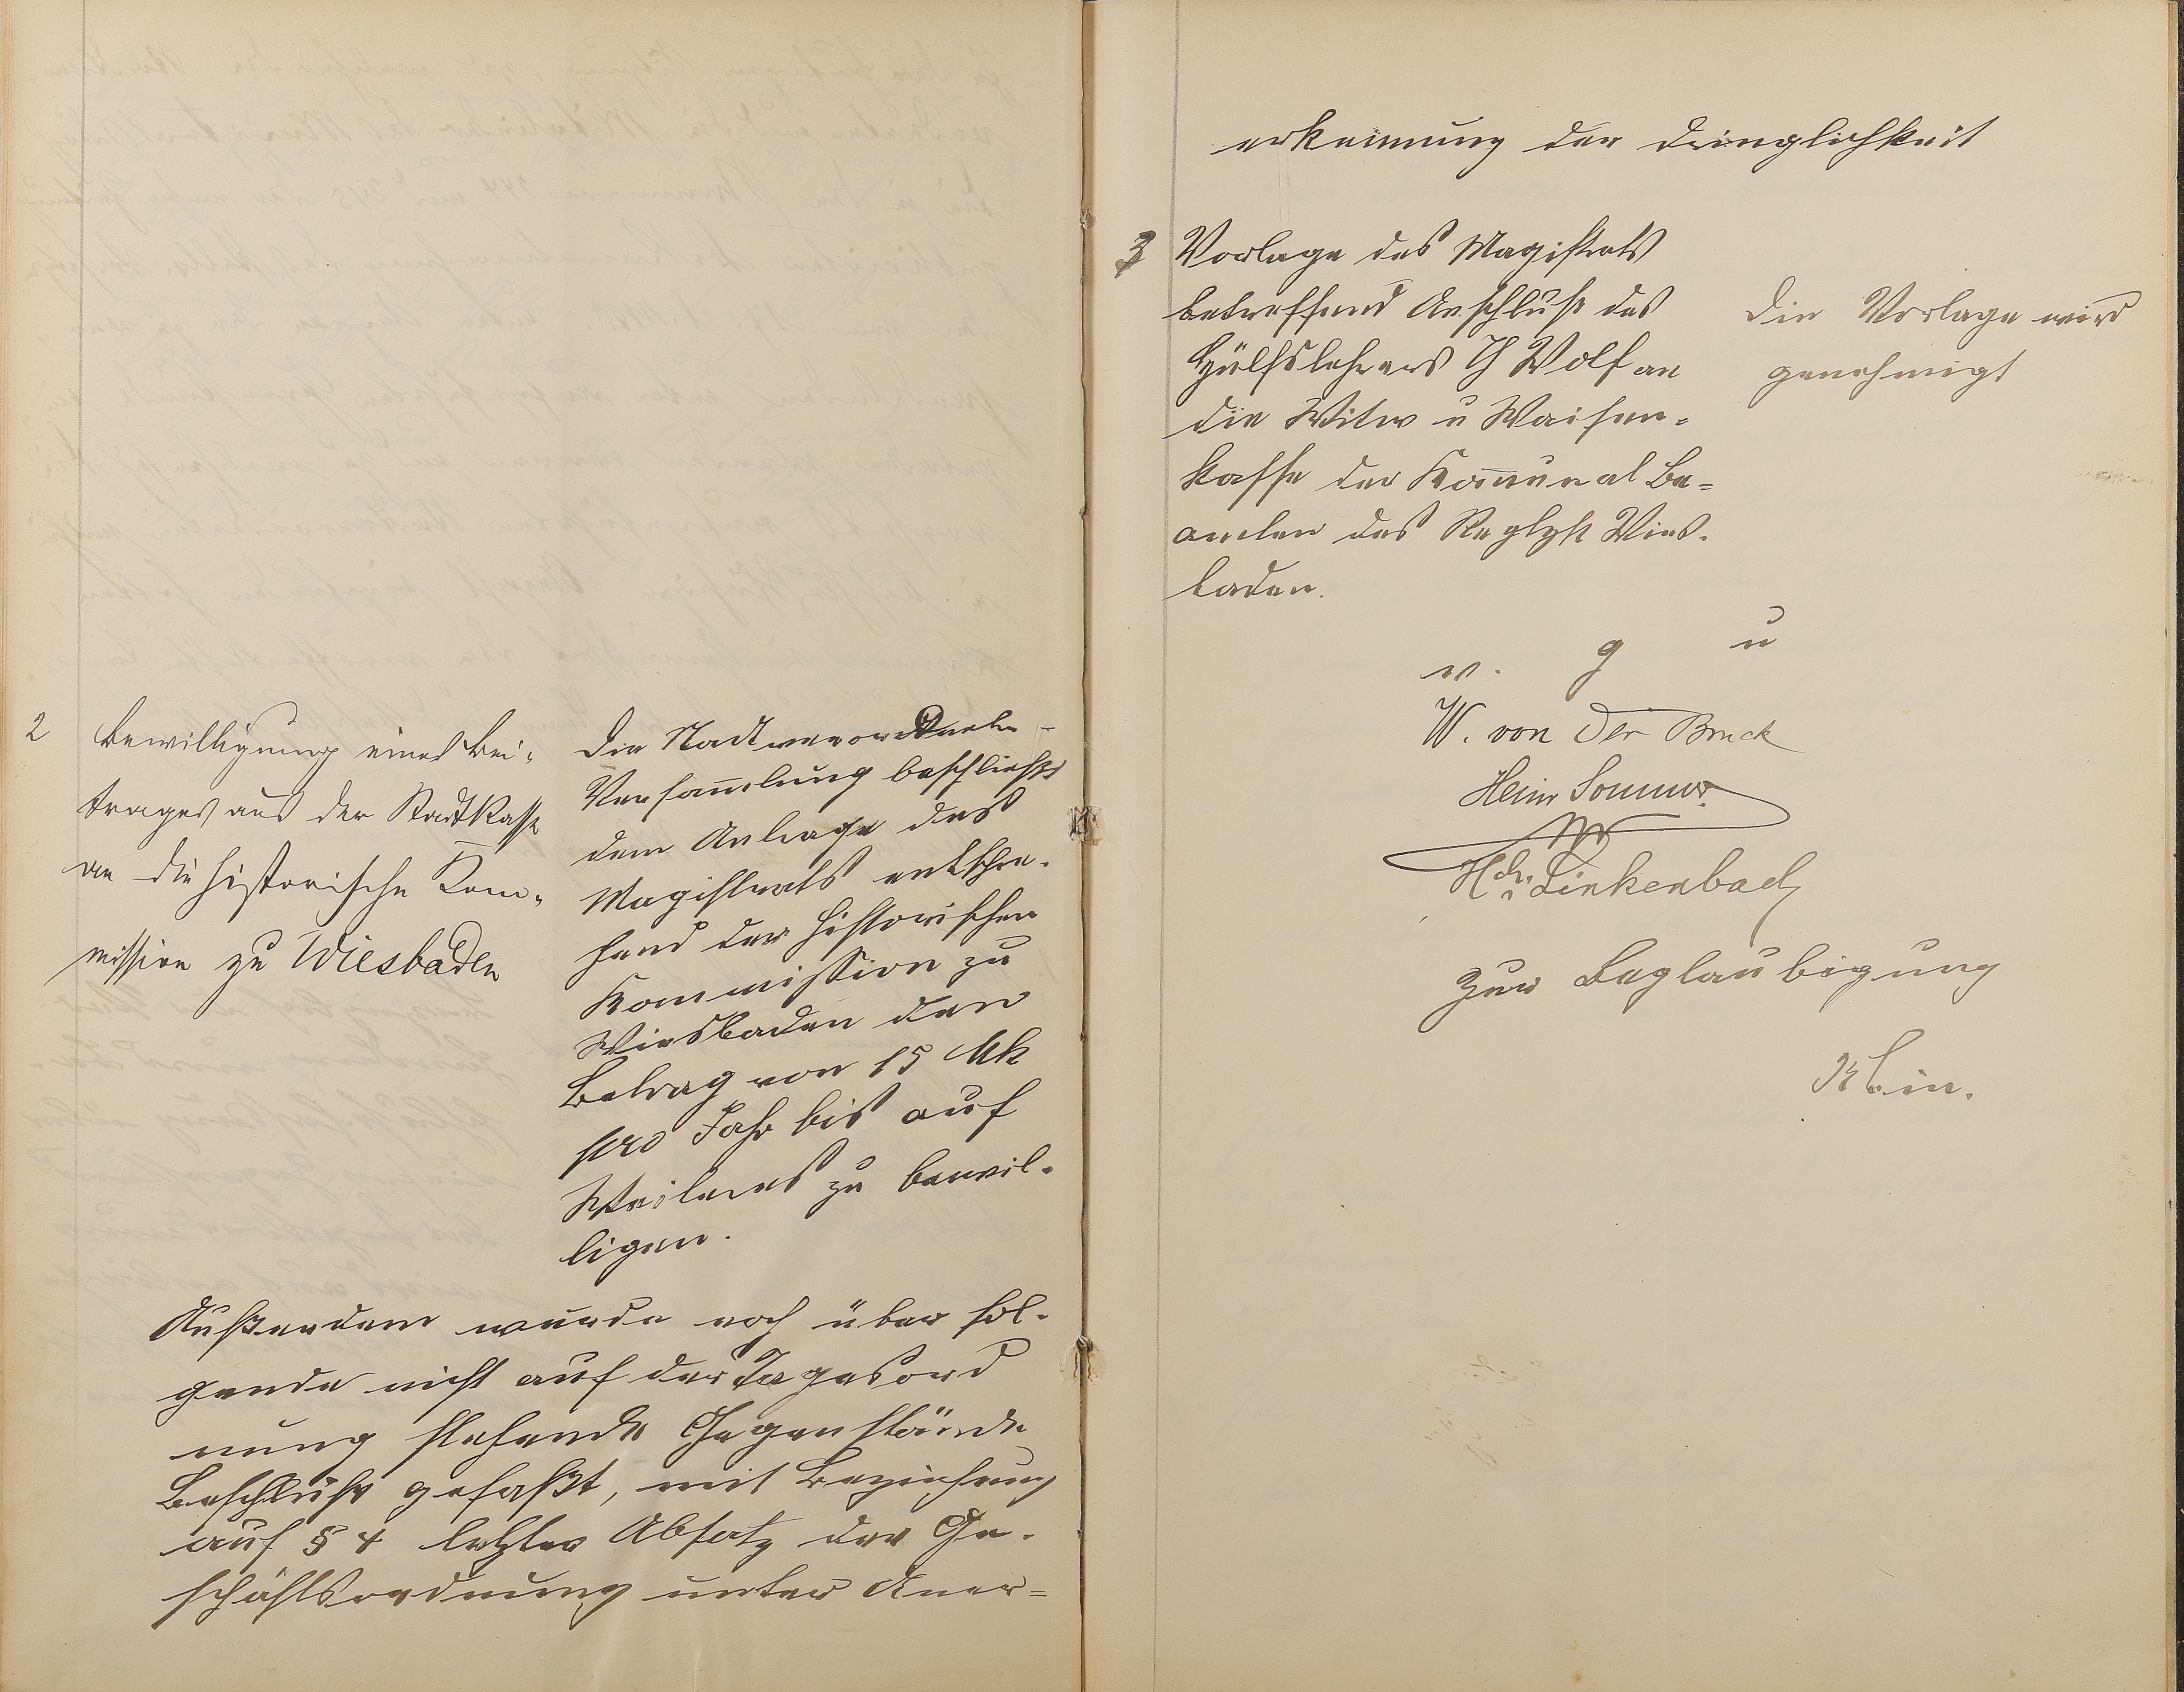 2
Bewilligung eines Bei-
trages aus der Stadtkasse
an die historische Kom-
mission zu Wiesbaden
Die Stadtverordneten-
Versammlung beschließt
dem Antrage des
Magistrats entspre-
hend der historischen
Kommission zu
Wiesbaden den
Betrag von 15 Mk
pro Jahr bis auf
Weiteres zu bewil-
ligen.
Außerdem wurde noch über fol-
gende nicht auf der Tagesord
nung stehende Gegenstände
Beschluß gefaßt, mit Beziehung
auf § 4 letzter Absatz der Ge-
schäftsordnung unter Aner=
erkennung der Dringlichkeit
3
Vorlage des Magistrats
betreffend Anschluß des
Hülfslehrers Th Wolf an
die Witw u Waisen-
kasse der Kommunal Be=
amten des Regbzk Wies-
baden.
Die Vorlage wird
genehmigt
v. g u
W. von der Bruck
Heinr Sommer
Hch. Linkenbach
Zur Beglaubigung